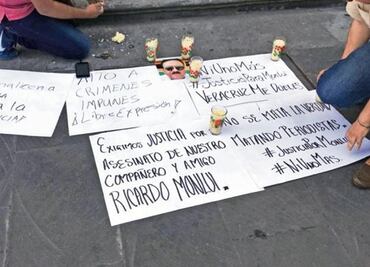 ALTO A
CRIMENES
IMPUNES
¡Libre Expresión!
#NiUnoMás
#JusticiaParaMonlui
VERACRUZ ME DUELES
EXIGIMOS JUSTICIA POR EL
ASESINATO DE NUESTRO
COMPAÑERO Y AMIGO
RICARDO MONLUI.
NO SE MATA LA VERDAD
MATANDO PERIODISTAS
#JusticiaPorMonlui
#NiUnoMas